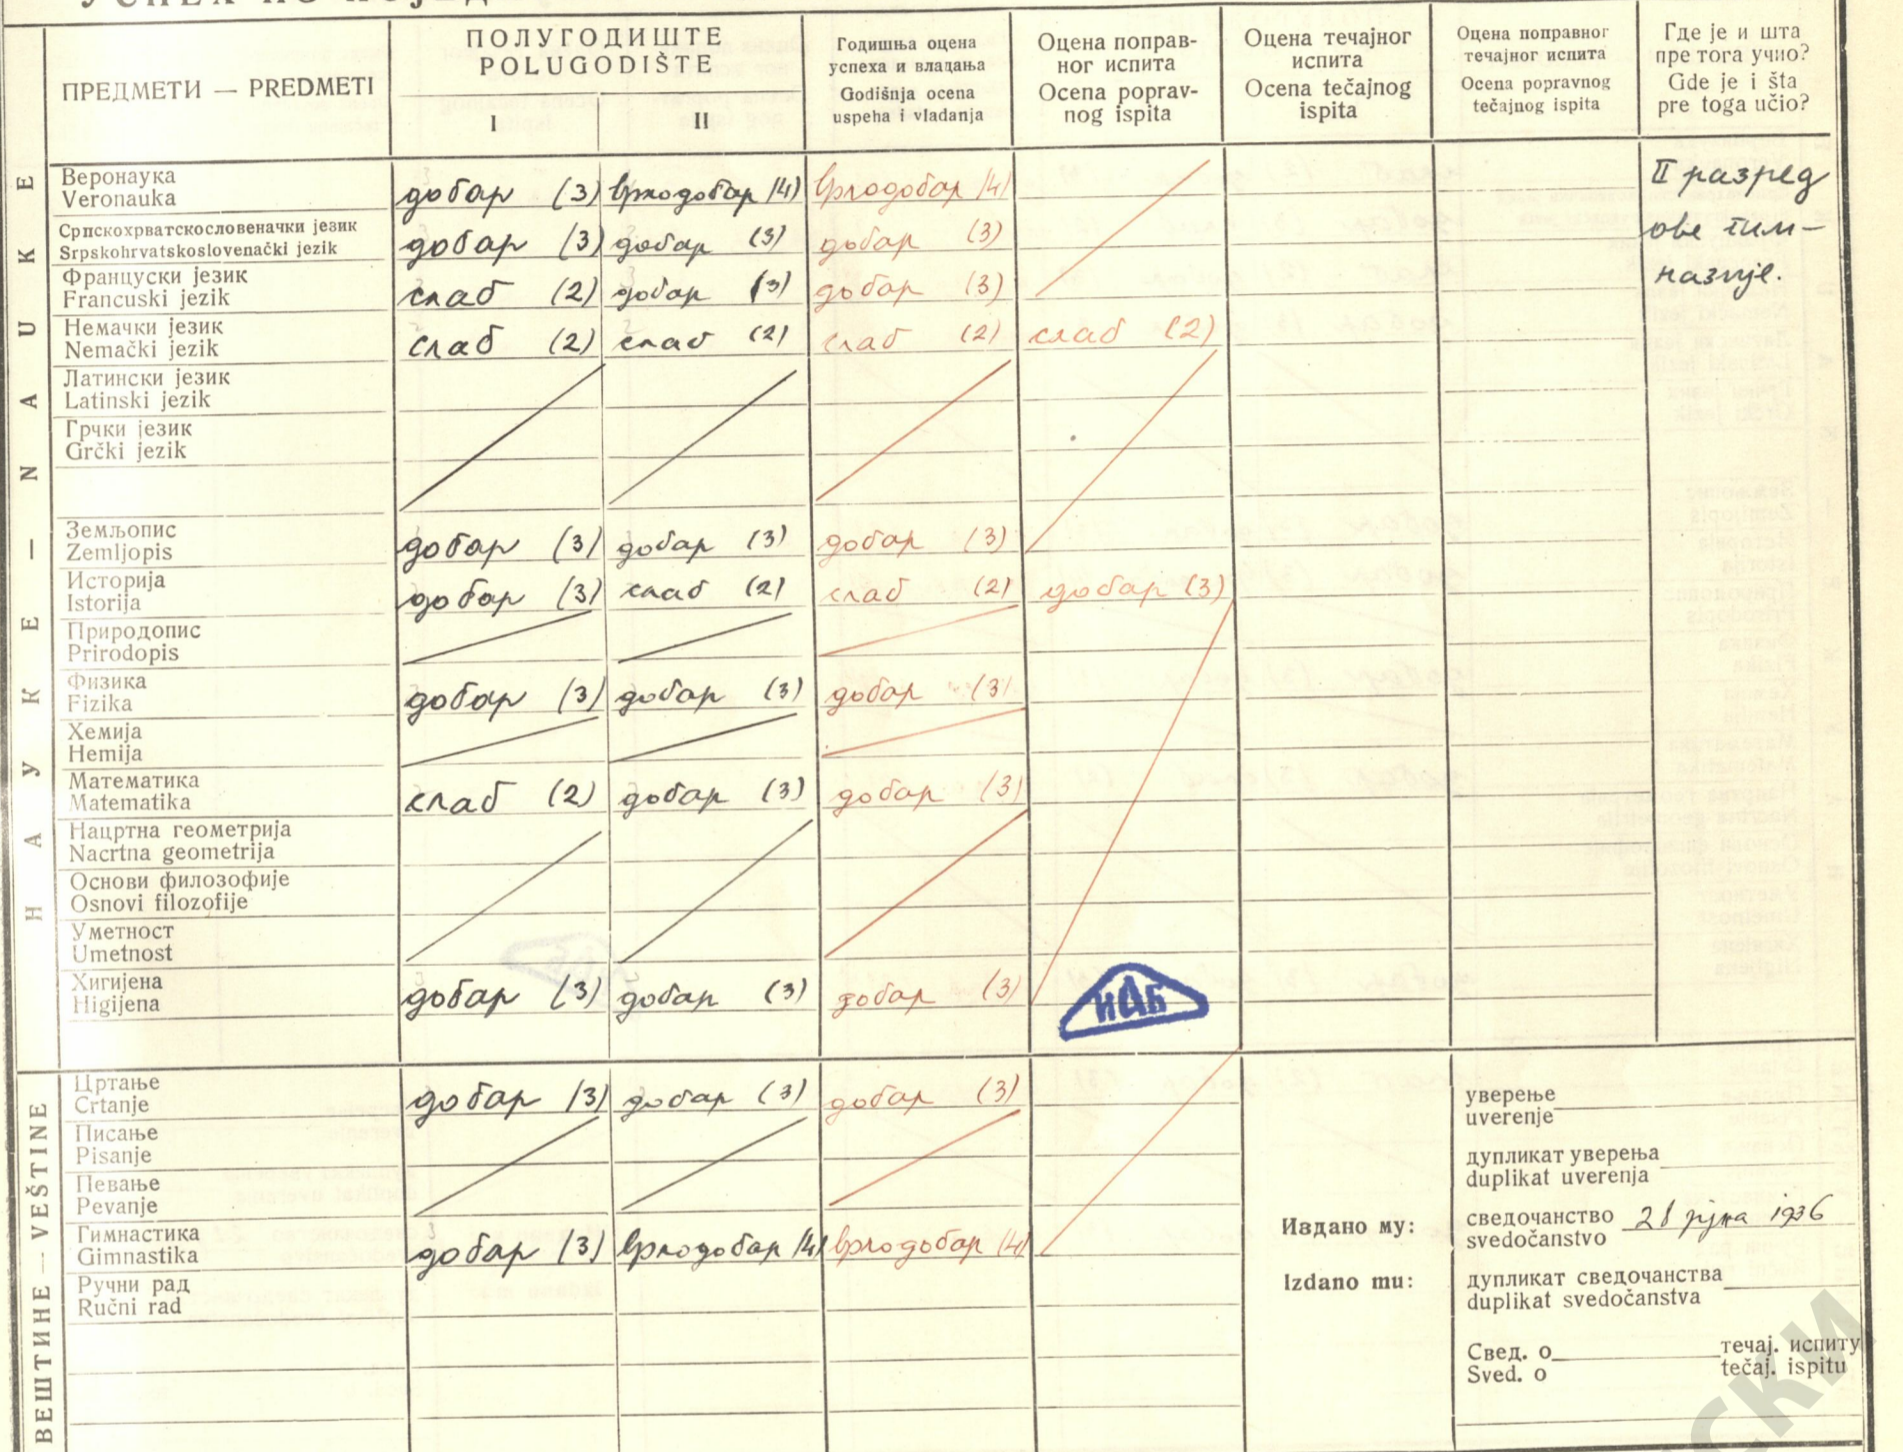 ПРЕДМЕТИ — PREDMETI
ПОЛУГОДИШТЕ
POLUGODIŠTE
I II
Годишња оцена
успеха и владања
Godišnja ocena
uspeha i vladanja
Оцена поправ-
ног испита
Ocena poprav-
nog ispita
Оцена течајног
испита
Ocena tečajnog
ispita
Оцена поправног
течајног испита
Ocena popravnog
tečajnog ispita
Где је и шта
пре тога учио?
Gde je i šta
pre toga učio?
НАУКЕ — NAUKE
Веронаука
Veronauka
добар (3) врлодобар (4) врлодобар (4)
II разред
ове гим-
назије.
Српскохрватскословеначки језик
Srpskohrvatskoslovenački jezik
добар (3) добар (3) добар (3)
Француски језик
Francuski jezik
слаб (2) добар (3) добар (3)
Немачки језик
Nemački jezik
слаб (2) слаб (2) слаб (2) слаб (2)
Латински језик
Latinski jezik
Грчки језик
Grčki jezik
Земљопис
Zemljopis
добар (3) добар (3) добар (3)
Историја
Istorija
добар (3) слаб (2) слаб (2) добар (3)
Природопис
Prirodopis
Физика
Fizika
добар (3) добар (3) добар (3)
Хемија
Hemija
Математика
Matematika
слаб (2) добар (3) добар (3)
Нацртна геометрија
Nacrtna geometrija
Основи филозофије
Osnovi filozofije
Уметност
Umetnost
Хигијена
Higijena
добар (3) добар (3) добар (3)
ИАБ
ВЕШТИНЕ — VEŠTINE
Цртање
Crtanje
добар (3) добар (3) добар (3)
Писање
Pisanje
Певање
Pevanje
Гимнастика
Gimnastika
добар (3) врлодобар (4) врлодобар (4)
Ручни рад
Ručni rad
Издано му:
Izdano mu:
уверење
uverenje
дупликат уверења
duplikat uverenja
сведочанство 28 јуна 1936
svedočanstvo
дупликат сведочанства
duplikat svedočanstva
Свед. о течај. испиту
Sved. o tečaj. ispitu
СКИ